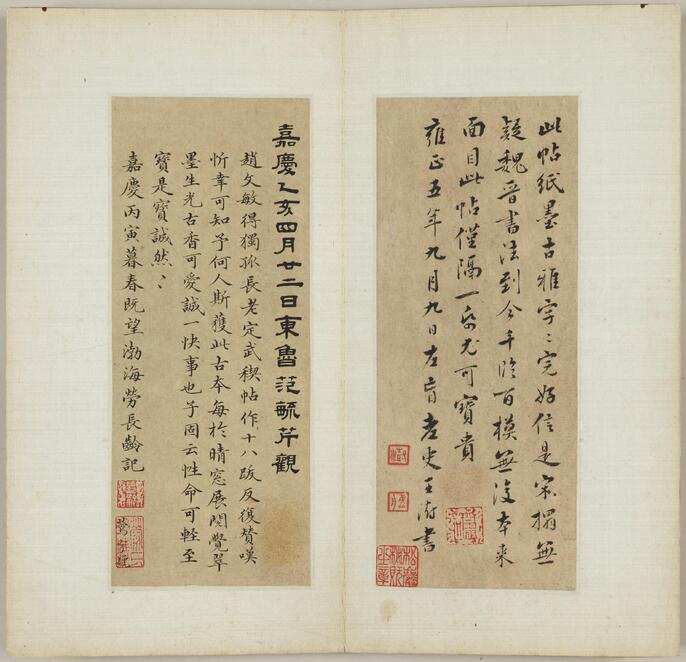 此帖紙墨古雅字〻完好信是宋搨無
疑魏晉書法到今千臨百模無復本來
面目此帖僅隔一紙尤可寶貴
雍正五年九月九日左盲老史王澍書
嘉慶乙亥四月廿二日東魯范毓芹觀
趙文敏得獨孤長老定武禊帖作十八跋反復贊嘆
忻幸可知予何人斯獲此古本每於晴窓展閱覺翠
墨生光古香可愛誠一快事也子固云性命可輕至
寶是寶誠然〻
嘉慶丙寅暮春既望渤海勞長齡記